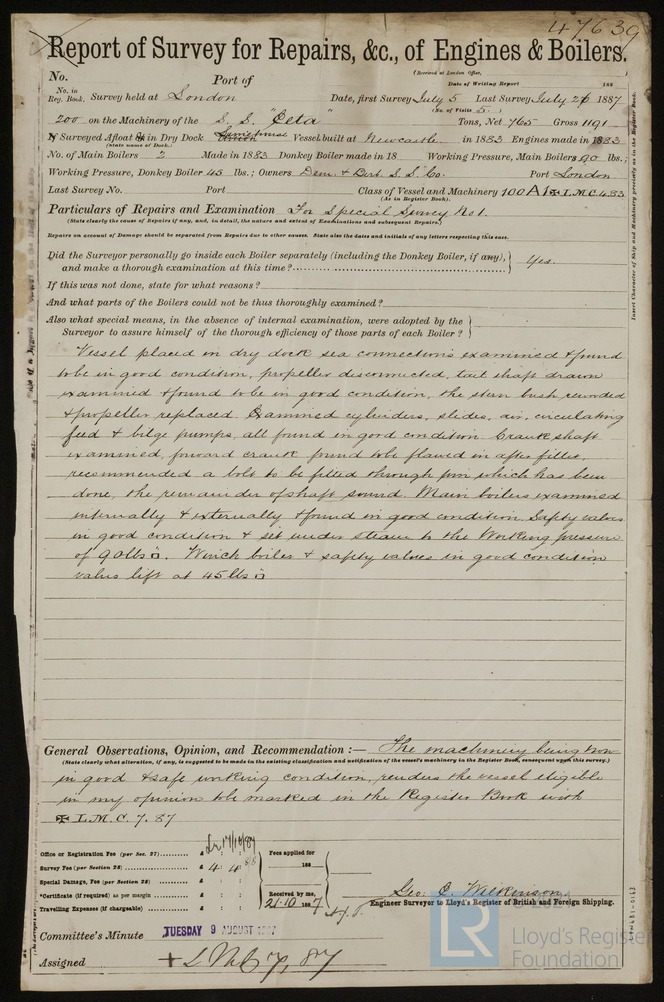 47639
Report of Survey for Repairs, &c., of Engines & Boilers.
(Received at London Office,
No. Port of
Date of Writing Report 188
No. in Reg. Book. Survey held at London Date, first Survey July 5 Last Survey July 26 1887
(No. of Visits 5.)
200 on the Machinery of the S. S. "Ceta" Tons, Net 765 Gross 1191
If Surveyed Afloat or in Dry Dock Vessel built at Newcastle in 1883 Engines made in 1883
(State name of Dock.)
No. of Main Boilers 2 Made in 1883 Donkey Boiler made in 18 Working Pressure, Main Boilers 90 lbs.;
Working Pressure, Donkey Boiler 45 lbs.; Owners Dem. & Berb. S. S. Co. Port London
Last Survey No. Port Class of Vessel and Machinery 100 A1 ✠ L.M.C. 4.83
(As in Register Book).
Particulars of Repairs and Examination For Special Survey No 1.
(State clearly the cause of Repairs if any, and, in detail, the nature and extent of Examinations and subsequent Repairs.)
Repairs on account of Damage should be separated from Repairs due to other causes. State also the dates and initials of any letters respecting this case.
Did the Surveyor personally go inside each Boiler separately (including the Donkey Boiler, if any),
and make a thorough examination at this time? Yes.
If this was not done, state for what reasons?
And what parts of the Boilers could not be thus thoroughly examined?
Also what special means, in the absence of internal examination, were adopted by the
Surveyor to assure himself of the thorough efficiency of those parts of each Boiler?
Vessel placed in dry dock sea connections examined & found
to be in good condition, propeller disconnected, tail shaft drawn
examined & found to be in good condition, the stern bush rewooded
& propeller replaced. Examined cylinders, slides, air, circulating
feed & bilge pumps, all found in good condition Crank shaft
examined, forward crank found to be flawed in after fillet,
recommended a bolt to be fitted through pin which has been
done, the remainder of shaft sound. Main boilers examined
internally & externally & found in good condition Safety valves
in good condition & set under steam to the Working pressure
of 90 lbs □. Winch boiler & safety valves in good condition
valves lift at 45 lbs □
General Observations, Opinion, and Recommendation:— The machinery being now
(State clearly what alteration, if any, is suggested to be made in the existing classification and notification of the vessel's machinery in the Register Book, consequent upon this survey.)
in good & safe working condition, renders the vessel eligible
in my opinion to be marked in the Register Book with
✠ L.M.C. 7.87
Office or Registration Fee (per Sec. 27) £ : :
Fees applied for
Survey Fee (per Section 28) £ 4 : 4 :
188
Special Damage, Fee (per Section 28) £ : :
*Certificate (if required) as per margin £ : :
Received by me,
Travelling Expenses (if chargeable) £ : :
21.10 1887
Geo. C. Wilkinson
Engineer Surveyor to Lloyd's Register of British and Foreign Shipping.
Committee's Minute TUESDAY 9 AUGUST 1887
Assigned + L M C 7, 87
Insert Character of Ship and Machinery precisely as in the Register Book.
© 2021
LR
Lloyd's Register
Foundation